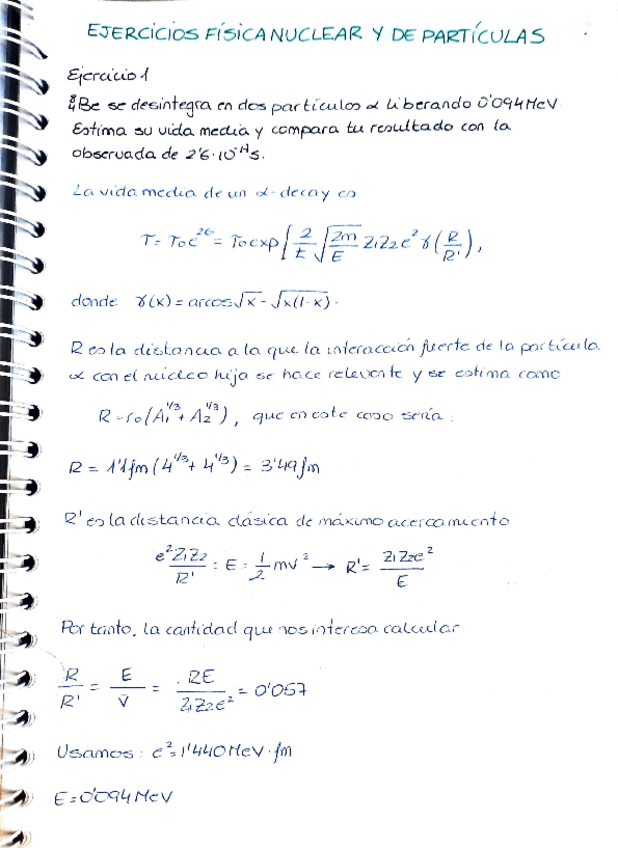 EJERCICIOS FÍSICA NUCLEAR Y DE PARTÍCULAS
Ejercicio 1
⁸₄Be se desintegra en dos partículas α liberando 0'094 MeV.
Estima su vida media y compara tu resultado con la
observada de 2'6·10⁻¹⁷s.
La vida media de un α-decay es
T = T₀e^{2G} = T₀exp[2/ħ √(2m/E) Z₁Z₂e² γ(R/R'),
donde γ(x) = arcos√x - √x(1-x).
R es la distancia a la que la interacción fuerte de la partícula
α con el núcleo hija se hace relevante y se estima como
R = r₀(A₁^{1/3} + A₂^{1/3}), que en este caso sería:
R = 1'1fm(4^{1/3} + 4^{1/3}) = 3'49fm
R' es la distancia clásica de máximo acercamiento
e²Z₁Z₂/R' = E = 1/2 mv² → R' = Z₁Z₂e²/E
Por tanto, la cantidad que nos interesa calcular
R/R' = E/V = RE/Z₁Z₂e² = 0'057
Usamos: e² = 1'440 MeV·fm
E = 0'094 MeV